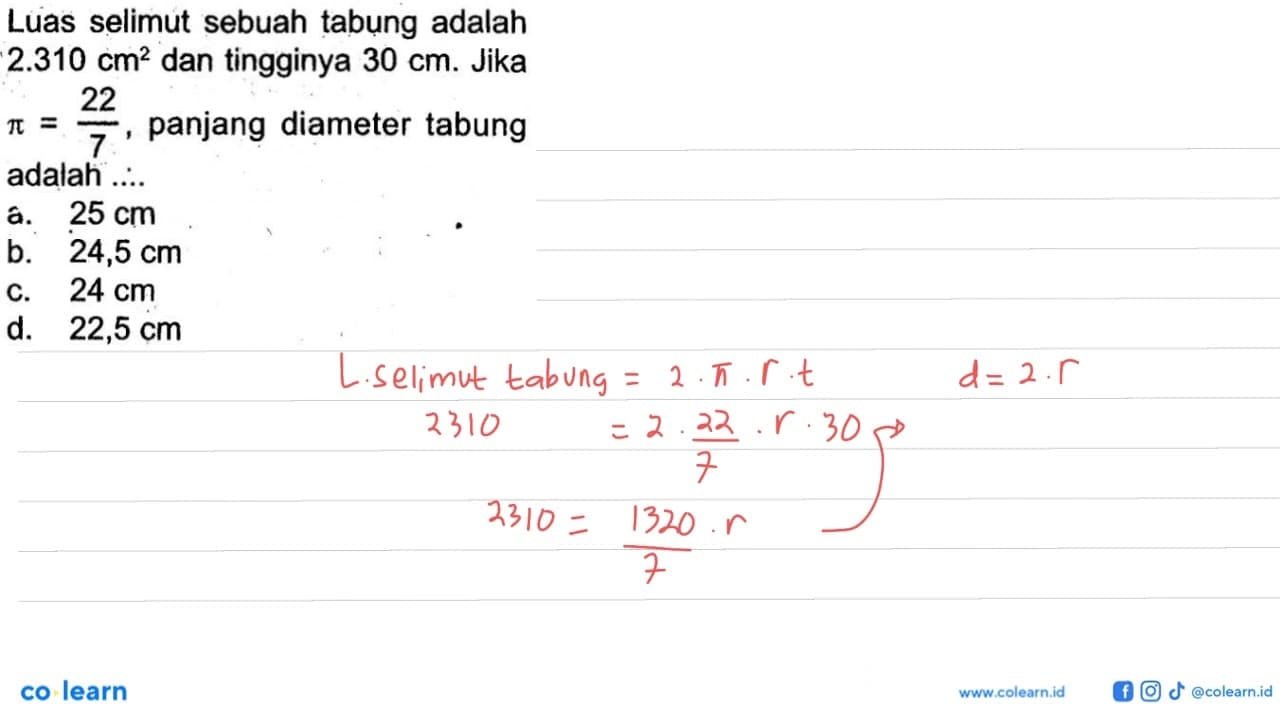 Luas selimut sebuah tabung adalah
2.310 cm² dan tingginya 30 cm. Jika
π = 22/7, panjang diameter tabung
adalah ....
a. 25 cm
b. 24,5 cm
c. 24 cm
d. 22,5 cm
L.selimut tabung = 2 . π . r . t
d = 2 . r
2310 = 2 . 22/7 . r . 30
2310 = 1320/7 . r
co learn
www.colearn.id
@colearn.id